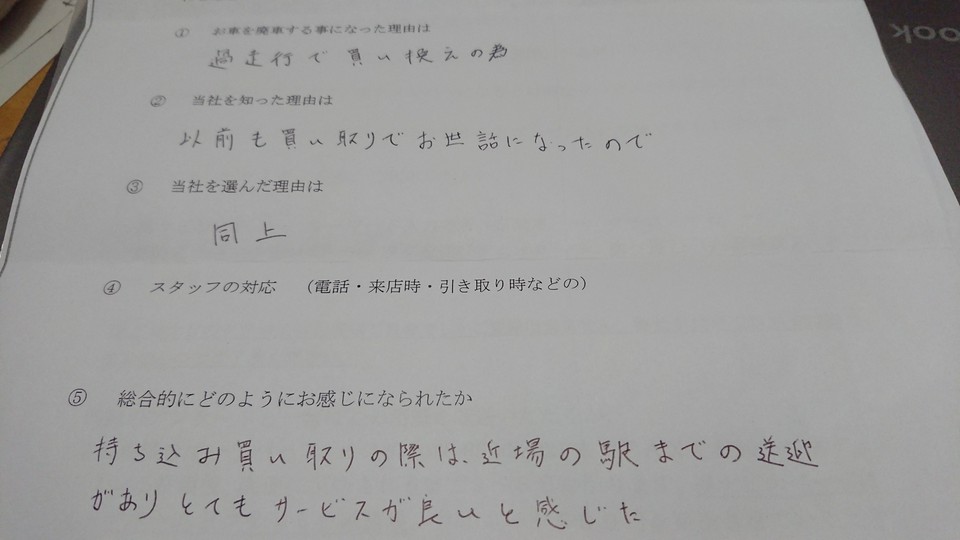 ① お車を廃車する事になった理由は
過走行で買い換えの為
② 当社を知った理由は
以前も買い取りでお世話になったので
③ 当社を選んだ理由は
同上
④ スタッフの対応 （電話・来店時・引き取り時などの）
⑤ 総合的にどのようにお感じになられたか
持ち込み買い取りの際は、近場の駅までの送迎
がありとてもサービスが良いと感じた
ook